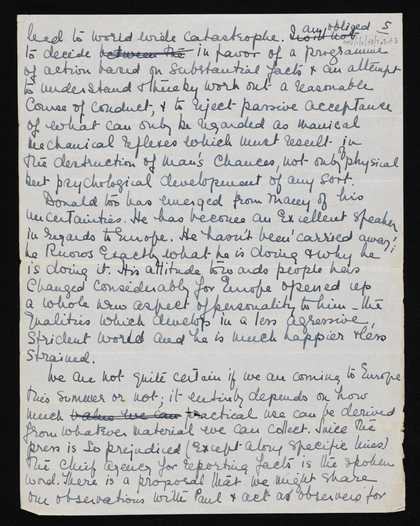 5
lead to world wide catastrophe. I am obliged
to decide between the in favor of a programme
of action based on substantial facts & an attempt
to understand & thereby work out a reasonable
course of conduct, & to reject passive acceptance
of what can only be regarded as maniacal
mechanical reflexes which must result in
the destruction of man's chances, not only of physical
but psychological development of any sort.
Donald too has emerged from many of his
uncertainties. He has become an excellent speaker
in regards to Europe. He hasn't been 'carried away';
he knows exactly what he is doing & why he
is doing it. His attitude towards people has
changed considerably for Europe opened up
a whole new aspect of personality to him – the
qualities which develop in a less agressive,
strident world and he is much happier & less
strained.
We are not quite certain if we are coming to Europe
this summer or not; it entirely depends on how
much value we can practical use can be derived
from whatever material we can collect. Since the
press is so prejudiced (except along specific lines)
the chief agency for reporting facts is the spoken
word. There is a proposal that we might share
our observations with Paul & act as observers for